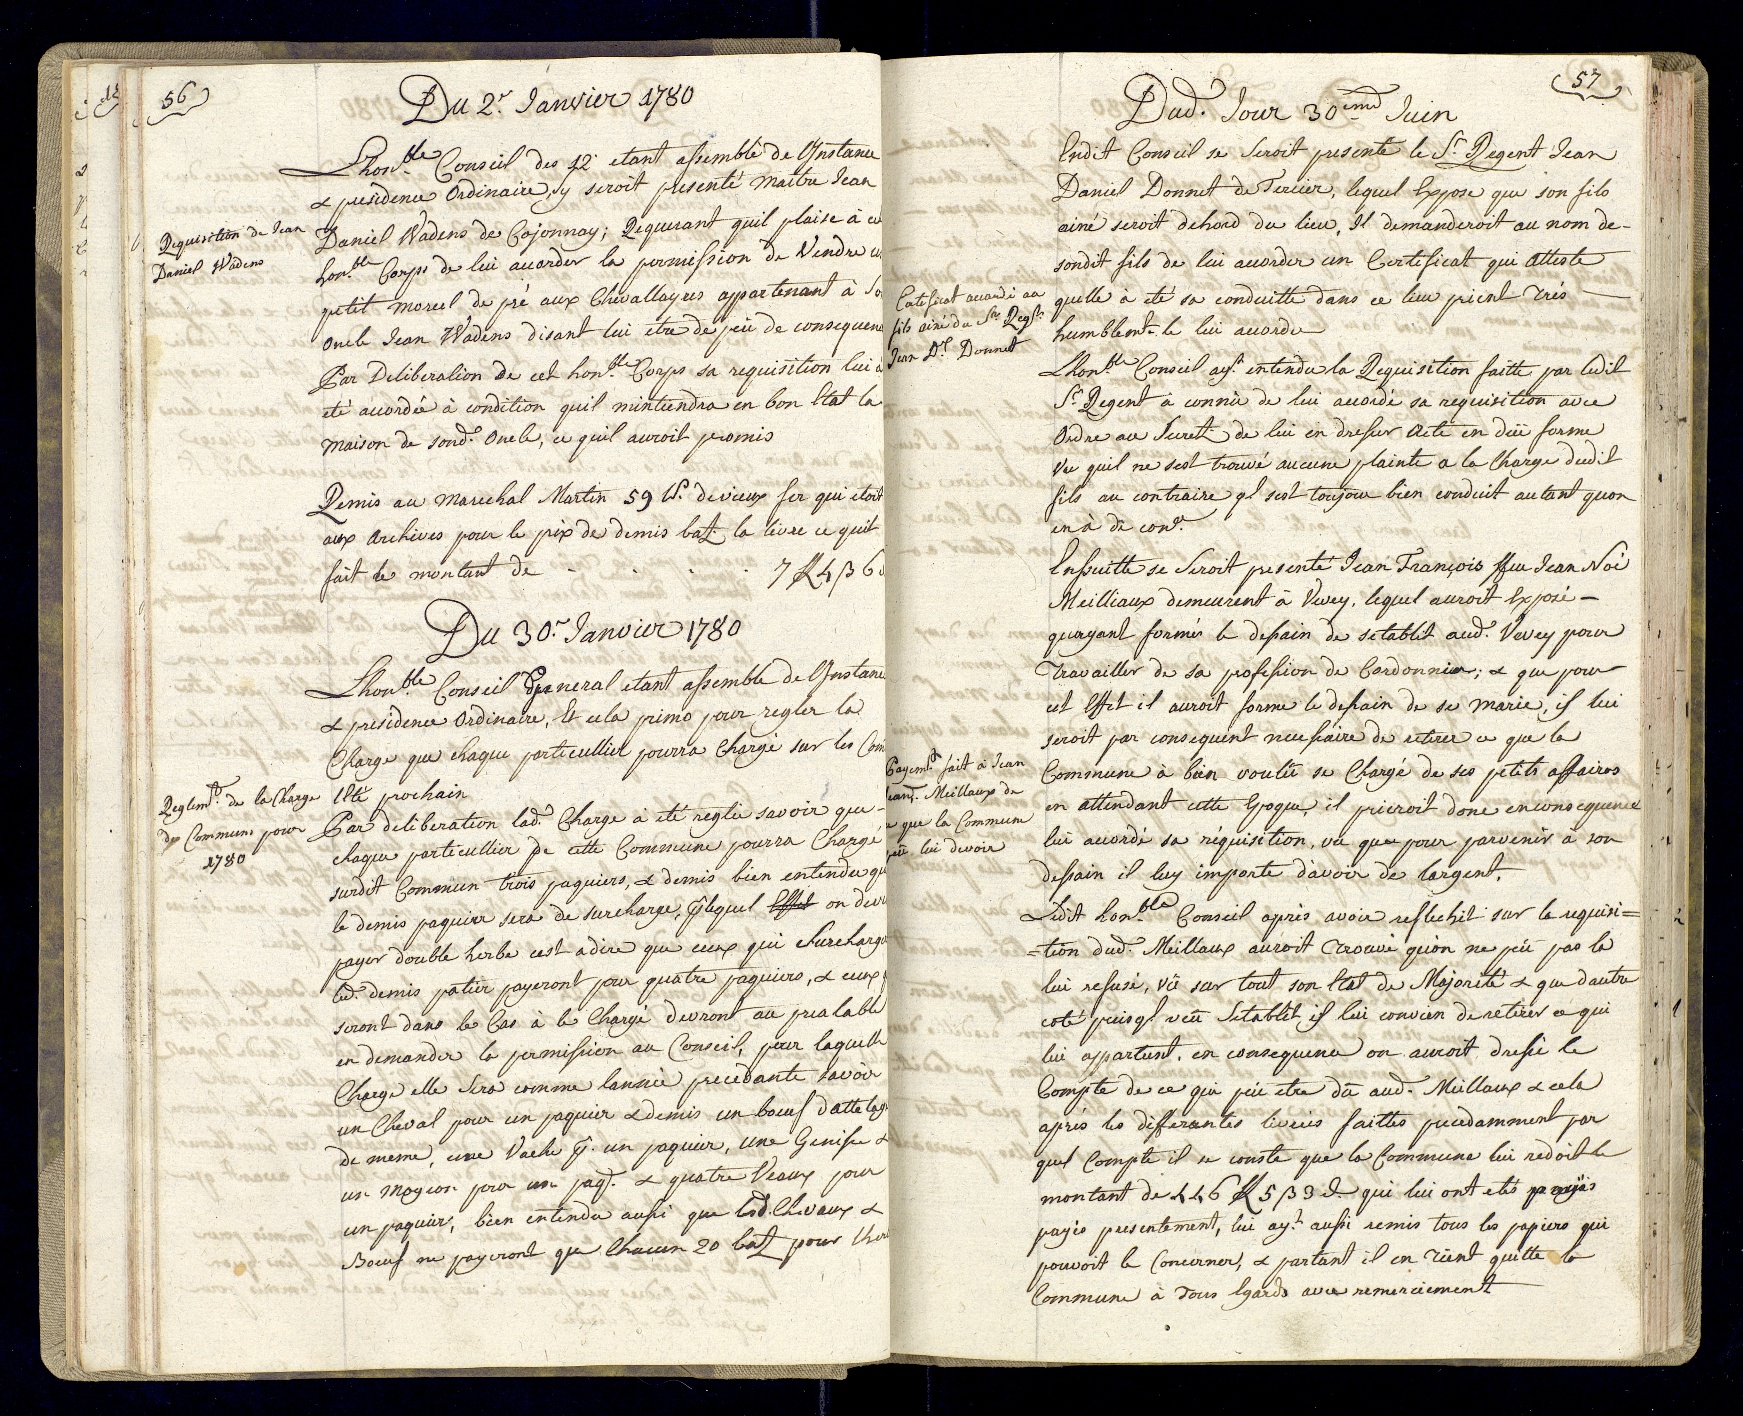 56
Du 2.e Janvier 1780
Lhon.ble Conseil des 12 etant assemblé de l'Instance
& présidence Ordinaire, sy seroit presenté maitre Jean
Requisition de Jean
Daniel Wadens
Daniel Wadens de Cojonnay; Requerant quil plaise à ce
hon.ble Corps de lui accorder la permission de Vendre un
petit morcel de pré aux Chevallayres appartenant à So
Oncle Jean Wadens disant lui etre de peü de consequen
Par Deliberation de cet hon.ble Corps sa requisition lui a
eté accordée à condition quil mintiendra en bon Etat la
maison de sond. Oncle, ce quil auroit promis
Remis au marechal Martin 59 lb. de vieux fer qui etoit
aux Archives pour le prix de demis batz la livre ce quil
fait le montant de - - - - 7 fl 4 ß 6
Du 30.e Janvier 1780
Lhon.ble Conseil General etant assemblé de l'Instance
& presidence Ordinaire, Et cela primo pour regler la
Charge que chaque particullier pourra Chargé sur les Com
l'Eté prochain
Reglem.t de la Charge
des Communs pour
1780
Par deliberation lad. Charge à eté reglée savoir que -
chaque particullier de cette Commune pourra Chargé
surdit Commun trois paquiers, & demis bien entendu qu
le demis paquier sera de surcharge, p.r lequel Effet on devr
payer double herbe cest a dire que ceux qui Surcharge
led. demis patier payeront pour quatre paquiers, & ceux
seront dans le Cas à le Chargé devront au prealable
en demander la permission au Conseil, pour laquelle
Charge elle Sera comme lannée precedante savoir
un Cheval pour un paquier & demis un boeuf dattelage
de meme, une Vache p.r un paquier, une Genisse &
un mogeon pour un paq.r & quatre Veaux pour
un paquier, bien entendu aussi que lesd. Chevaux &
Boeuf ne payeront que Chacun 20 batz pour lher
57
Dud. Jour 30.eme Juin
Endit Conseil se Seroit presenté le S.r Regent Jean
Daniel Donnet de Tercier, lequel Expose que son fils
ainé seroit dehord du lieu, Il demanderoit au nom de-
sondit fils de lui accorder un Certificat qui Atteste
Certificat accordé au
fils ainé du S.r Reg.t
Jean D.l Donnet
quelle à eté sa conduitte dans ce lieu prient très
humblem.t le lui accorder
Lhon.ble Conseil ay.t entendu la Requisition faitte par ledit
S.r Regent à connüe de lui accordé sa requisition avec
Ordre au Secret. de lui en dresser Acte en düe forme
vu quil ne sest trouvé aucune plainte a la Charge dudit
fils au contraire q.l sest toujour bien conduit autant quon
en à de con.e
Ensuitte se Seroit presenté Jean François ffeu Jean Noé
Meilliaux demeurent à Vevey, lequel auroit Exposé -
quayant formés le dessain de setablit aud. Vevey pour
Travailler de sa profession de Cordonnier; & que pour
cet Effet il auroit forme le dessain de se marie, il lui
seroit par consequent necessaire de retirer ce que la
Payem.t fait à Jean
Franç. Meillaux de
ce que la Commune
peü lui devoir
Commune à bien voulü se Chargé de ses petits affaires
en attendant cette Epoque, il prieroit donc en consequence
lui accordé sa réquisition, vu que pour parvenir à son
dessain il luy importe d'avoir de largent.
Ledit hon.ble Conseil après avoir reflechit sur la requisi=
=tion dud. Meillaux auroit trouvé qu'on ne peü pas la
lui refusé, vü sur tout son Etat de Majorité & que dautre
coté puisq.l veü Setablit il lui convien de retirer ce qui
lui appartent. en consequence on auroit dressé le
Compte de ce qui peü etre dü aud. Meillaux & cela
après les differentes livrées faittes precedamment par
quel Compte il se conste que la Commune lui redoit le
montant de 446 fl 5 ß 3 d. qui lui ont etés
payés presentement, lui ay.t aussi remis tous les papiers qui
pouvoit le Concerner, & partant il en tient quitte la
Commune à Tous Egards avec remerciement